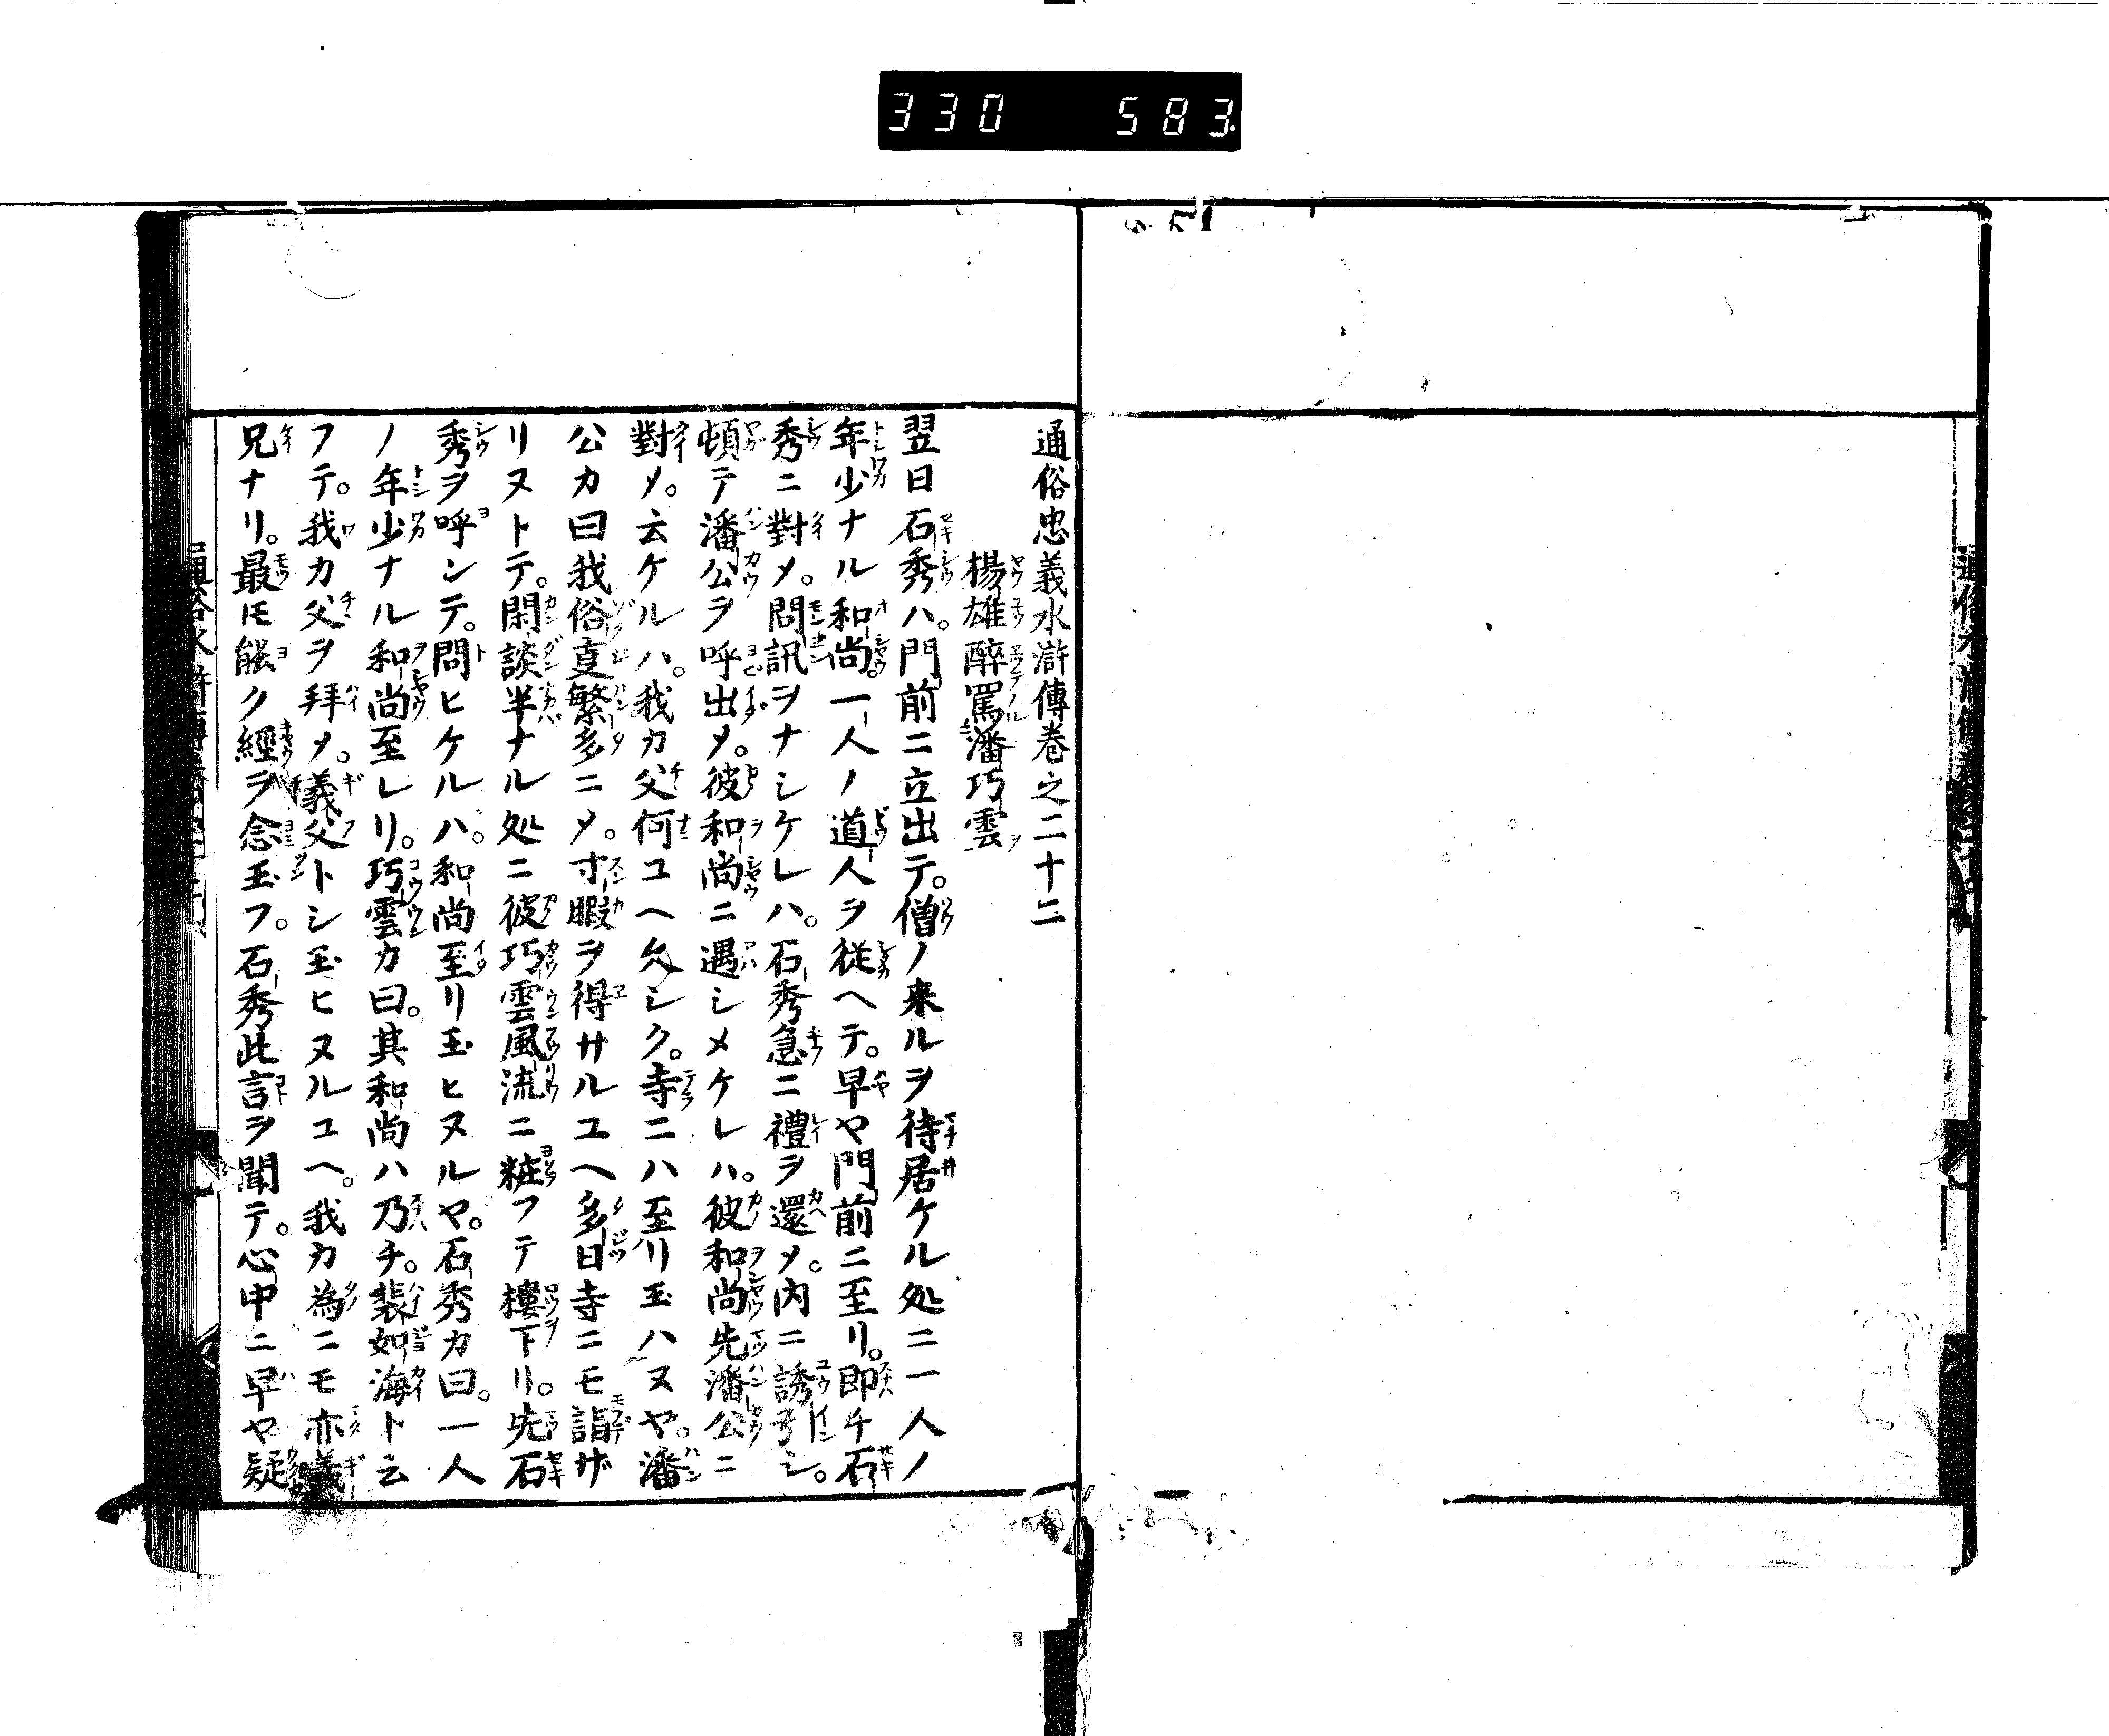 330 583
通俗忠義水滸傳卷之二十二
楊雄醉罵潘巧雲
翌日石秀ハ。門前ニ立出テ。僧ノ来ルヲ待居ケル処ニ一人ノ
年少ナル和尚。一人ノ道人ヲ従ヘテ。早ヤ門前ニ至リ。即チ石
秀ニ對メ。問訊ヲナシケレハ。石秀急ニ禮ヲ還メ。内ニ誘引シ。
頓テ潘公ヲ呼出メ。彼和尚ニ遇シメケレハ。彼和尚先潘公ニ
對メ。云ケルハ。我カ父何ユヘ久シク。寺ニハ至リ玉ハヌヤ。潘
公カ曰我俗叓繁多ニメ。寸暇ヲ得サルユヘ多日寺ニモ詣ザ
リヌトテ。閑談半ナル処ニ彼巧雲風流ニ粧フテ樓下リ。先石
秀ヲ呼ンテ。問ヒケルハ。和尚至リ玉ヒヌルヤ。石秀カ曰。一人
ノ年少ナル和尚至レリ。巧雲カ曰。其和尚ハ乃チ。裴如海ト云
フテ。我カ父ヲ拜メ。義父トシ玉ヒヌルユヘ。我カ為ニモ亦義
兄ナリ。最モ能ク經ヲ念玉フ。石秀此言ヲ聞テ。心中ニ早ヤ疑